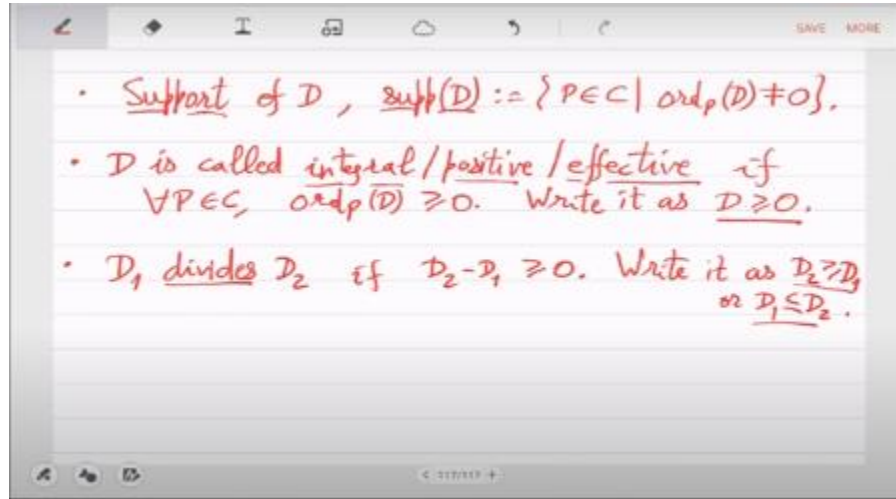 SAVE MORE
· Support of D, supp(D) := {P∈C | ord_P(D)≠0}.
· D is called integral/positive/effective if
∀P∈C, ord_P(D) ≥ 0. Write it as D ≥ 0.
· D₁ divides D₂ if D₂-D₁ ≥ 0. Write it as D₂ ≥ D₁
or D₁ ≤ D₂.
< 117/117 +